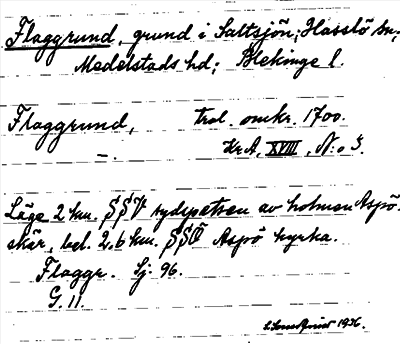 Flaggrund, grund i Saltsjön; Hasslö sn,
Medelstads hd; Blekinge l.
Flaggrund, trol. omkr. 1700.
—. Kr.A. XVIII, N:o 3.
Läge 2 km. SSV sydspetsen av holmen Aspö-
skär, bel. 2,6 km. SSÖ Aspö kyrka.
Flaggr. Sj. 96.
G. 11.
1936.